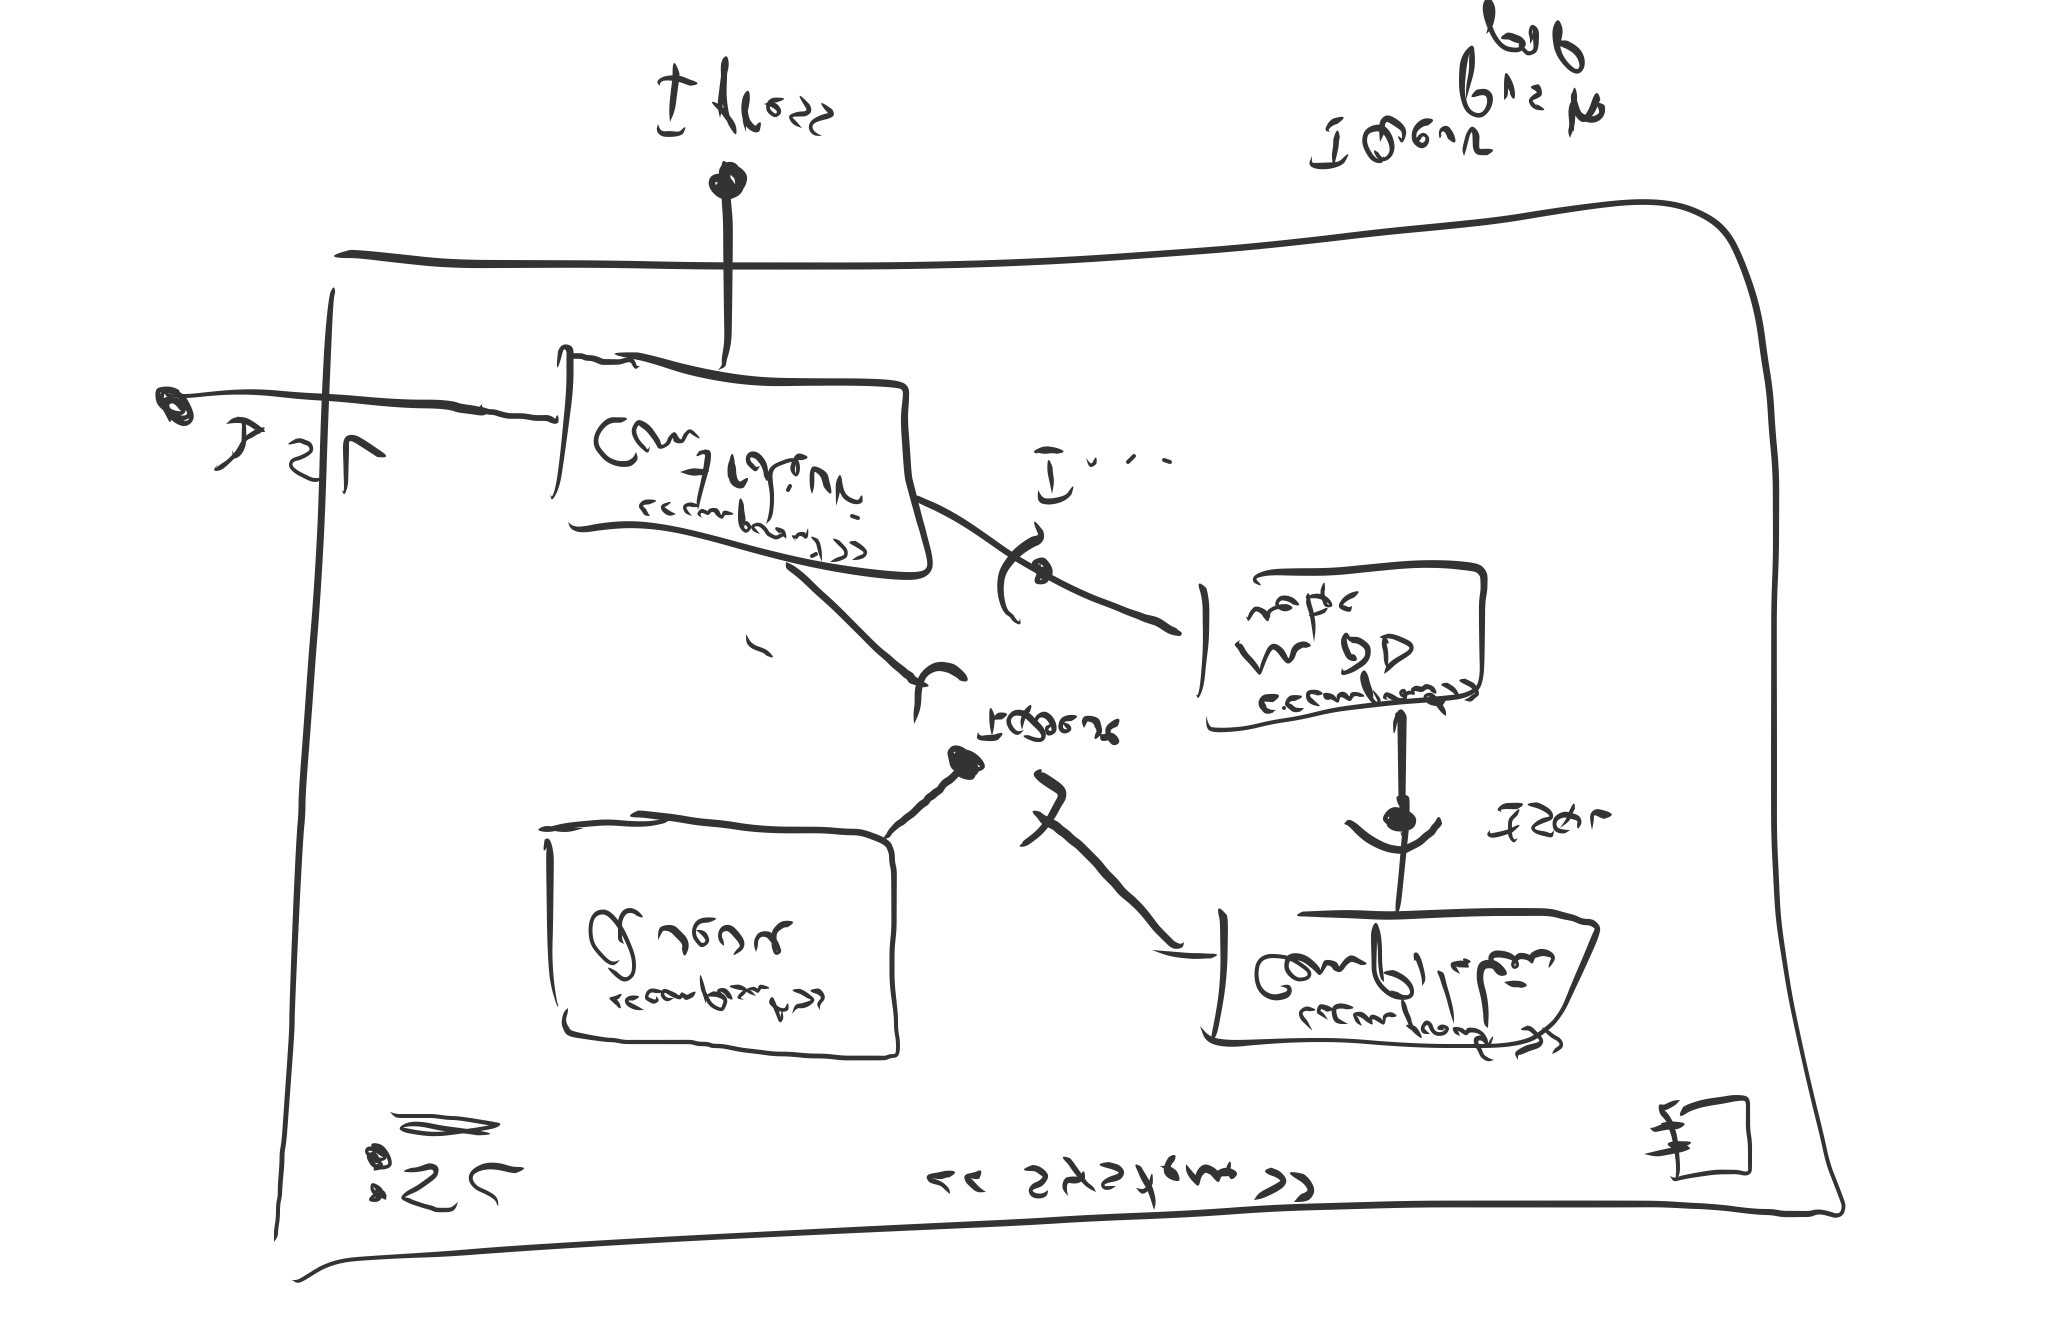 :SC
<<system>>
<<component>>
Queue
<<component>>
Compilation
ISQL
IQueue
<<component>>
MDD
<<component>>
Controleur
I....
ISL
IPress
IQueue
push
pop